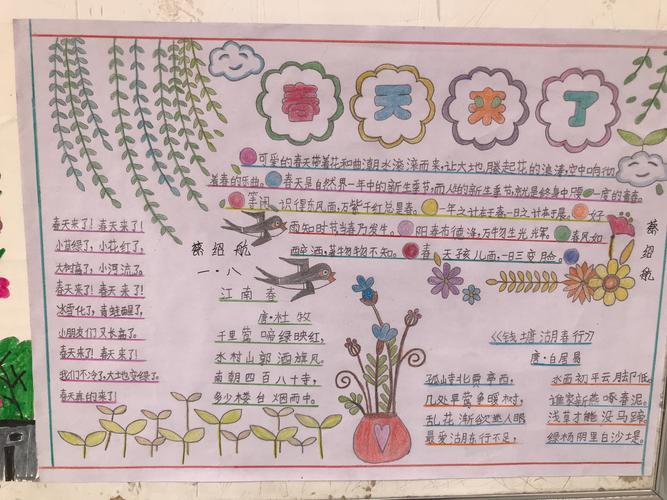 春天来了
可爱的春天带着花和曲潮水滚滚而来,让大地腾起花的浪漫,空中响彻
着春的乐曲。春天是自然界一年中的新生季节,而人的新生季节,就是终身中唯一一度的青春。
等闲识得东风面,万紫千红总是春。一年之计在于春一日之计在于晨。好
雨知时节当春乃发生。阳春布德泽,万物生光辉。春风如
醉洒,著物物不知。春天孩儿面,一日三变脸。
蔡绍航
一.八
蔡绍航
春天来了!春天来了!
小草绿了,小花红了,
大树高了,小河流了。
春天来了!春天来了!
冰雪化了,青蛙醒了,
小朋友们又长高了。
春天来了!春天来了!
我们不冷了,大地也变绿了。
春天真的来了!
江南春
唐·杜牧
千里莺啼绿映红,
水村山郭酒旗风。
南朝四百八十寺,
多少楼台烟雨中。
《钱塘湖春行》
唐·白居易
孤山寺北贾亭西,
水面初平云脚低。
几处早莺争暖树,
谁家新燕啄春泥。
乱花渐欲迷人眼
浅草才能没马蹄。
最爱湖东行不足,
绿杨阴里白沙堤。